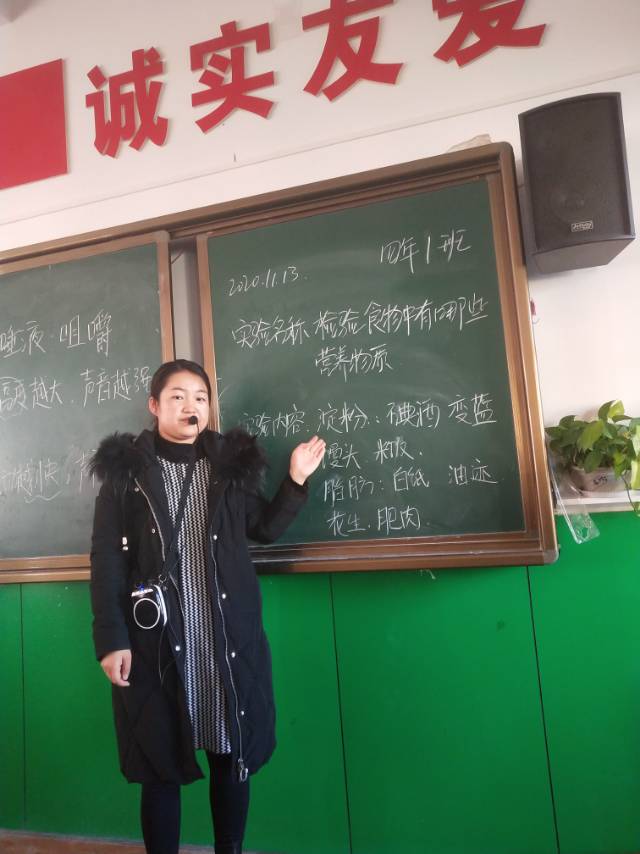 诚实友爱
2020.11.13.
四年1班
实验名称、检验食物中有哪些
营养物质
实验内容:淀粉:碘酒 变蓝
馒头、米饭、
脂肪:白纸 油迹
花生、肥肉
唾液 咀嚼
越大、声音越强
越快